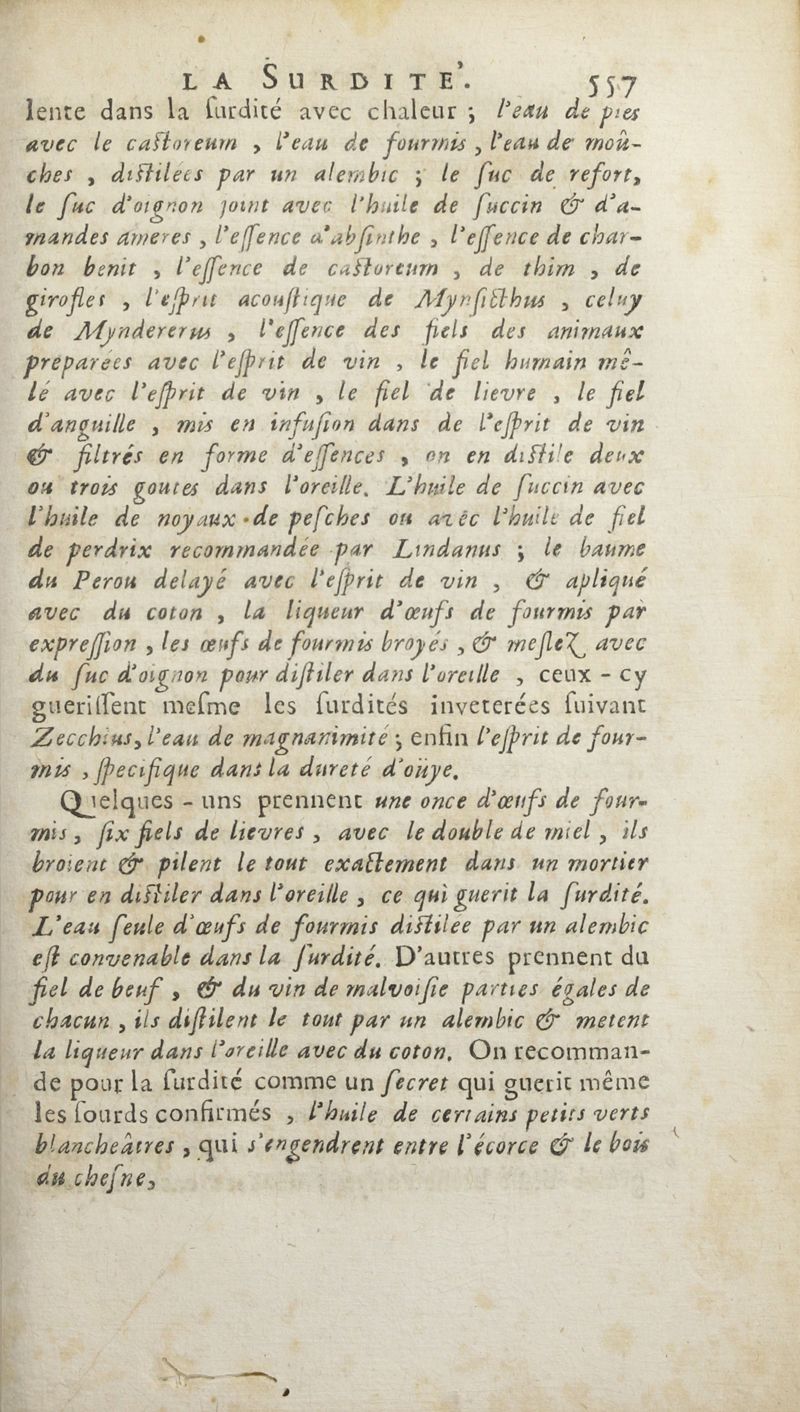 LA SURDITE'. 557
lente dans la ſurdité avec chaleur ; l'eau de pies
avec le caſtoreum , l'eau de fourmis , l'eau de moû-
ches , diſtilées par un alembic ; le ſuc de refort,
le ſuc d'oignon joint avec l'huile de ſuccin & d'a-
mandes ameres , l'eſſence d'abſinthe , l'eſſence de char-
bon benit , l'eſſence de caſtoreum , de thim , de
girofles , l'eſprit acouſtique de Mynſicthus , celuy
de Myndererus , l'eſſence des fiels des animaux
preparées avec l'eſprit de vin , le fiel humain mê-
lé avec l'eſprit de vin , le fiel de lievre , le fiel
d'anguille , mis en infuſion dans de l'eſprit de vin
& filtrés en forme d'eſſences , on en diſtile deux
ou trois goutes dans l'oreille. L'huile de ſuccin avec
l'huile de noyaux de peſches ou avec l'huile de fiel
de perdrix recommandée par Lindanus ; le baume
du Perou delayé avec l'eſprit de vin , & apliqué
avec du coton , la liqueur d'œufs de fourmis par
expreſſion , les œufs de fourmis broyés , & meſlez avec
du ſuc d'oignon pour diſtiler dans l'oreille , ceux - cy
gueriſſent meſme les ſurdités inveterées ſuivant
Zecchius, l'eau de magnanimité ; enfin l'eſprit de four-
mis , ſpecifique dans la dureté d'oüye.
Quelques - uns prennent une once d'œufs de four-
mis , ſix fiels de lievres , avec le double de miel , ils
broient & pilent le tout exactement dans un mortier
pour en diſtiler dans l'oreille , ce qui guerit la ſurdité.
L'eau ſeule d'œufs de fourmis diſtilee par un alembic
eſt convenable dans la ſurdité. D'autres prennent du
fiel de beuf , & du vin de malvoiſie parties égales de
chacun , ils diſtilent le tout par un alembic & metent
la liqueur dans l'oreille avec du coton. On recomman-
de pour la ſurdité comme un ſecret qui guerit même
les ſourds confirmés , l'huile de certains petits verts
blancheâtres , qui s'engendrent entre l'écorce & le bois
du cheſne,